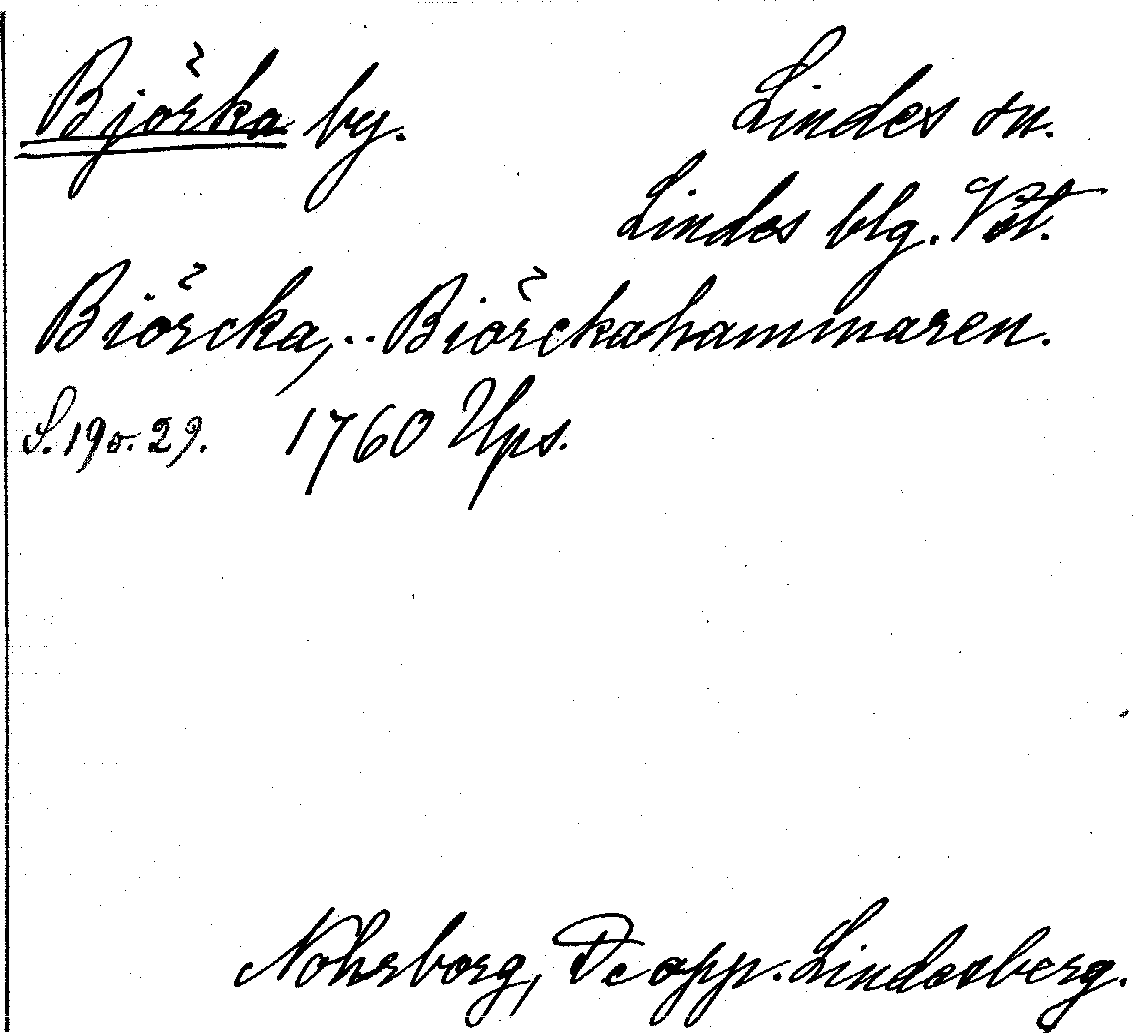 Björka by. Lindes sn.
Lindes blg. Vstm.
Biörcka,.. Biörckahammaren.
S. 19 o. 29. 1760 Ups.
Nohrborg, De opp. Lindesberg.